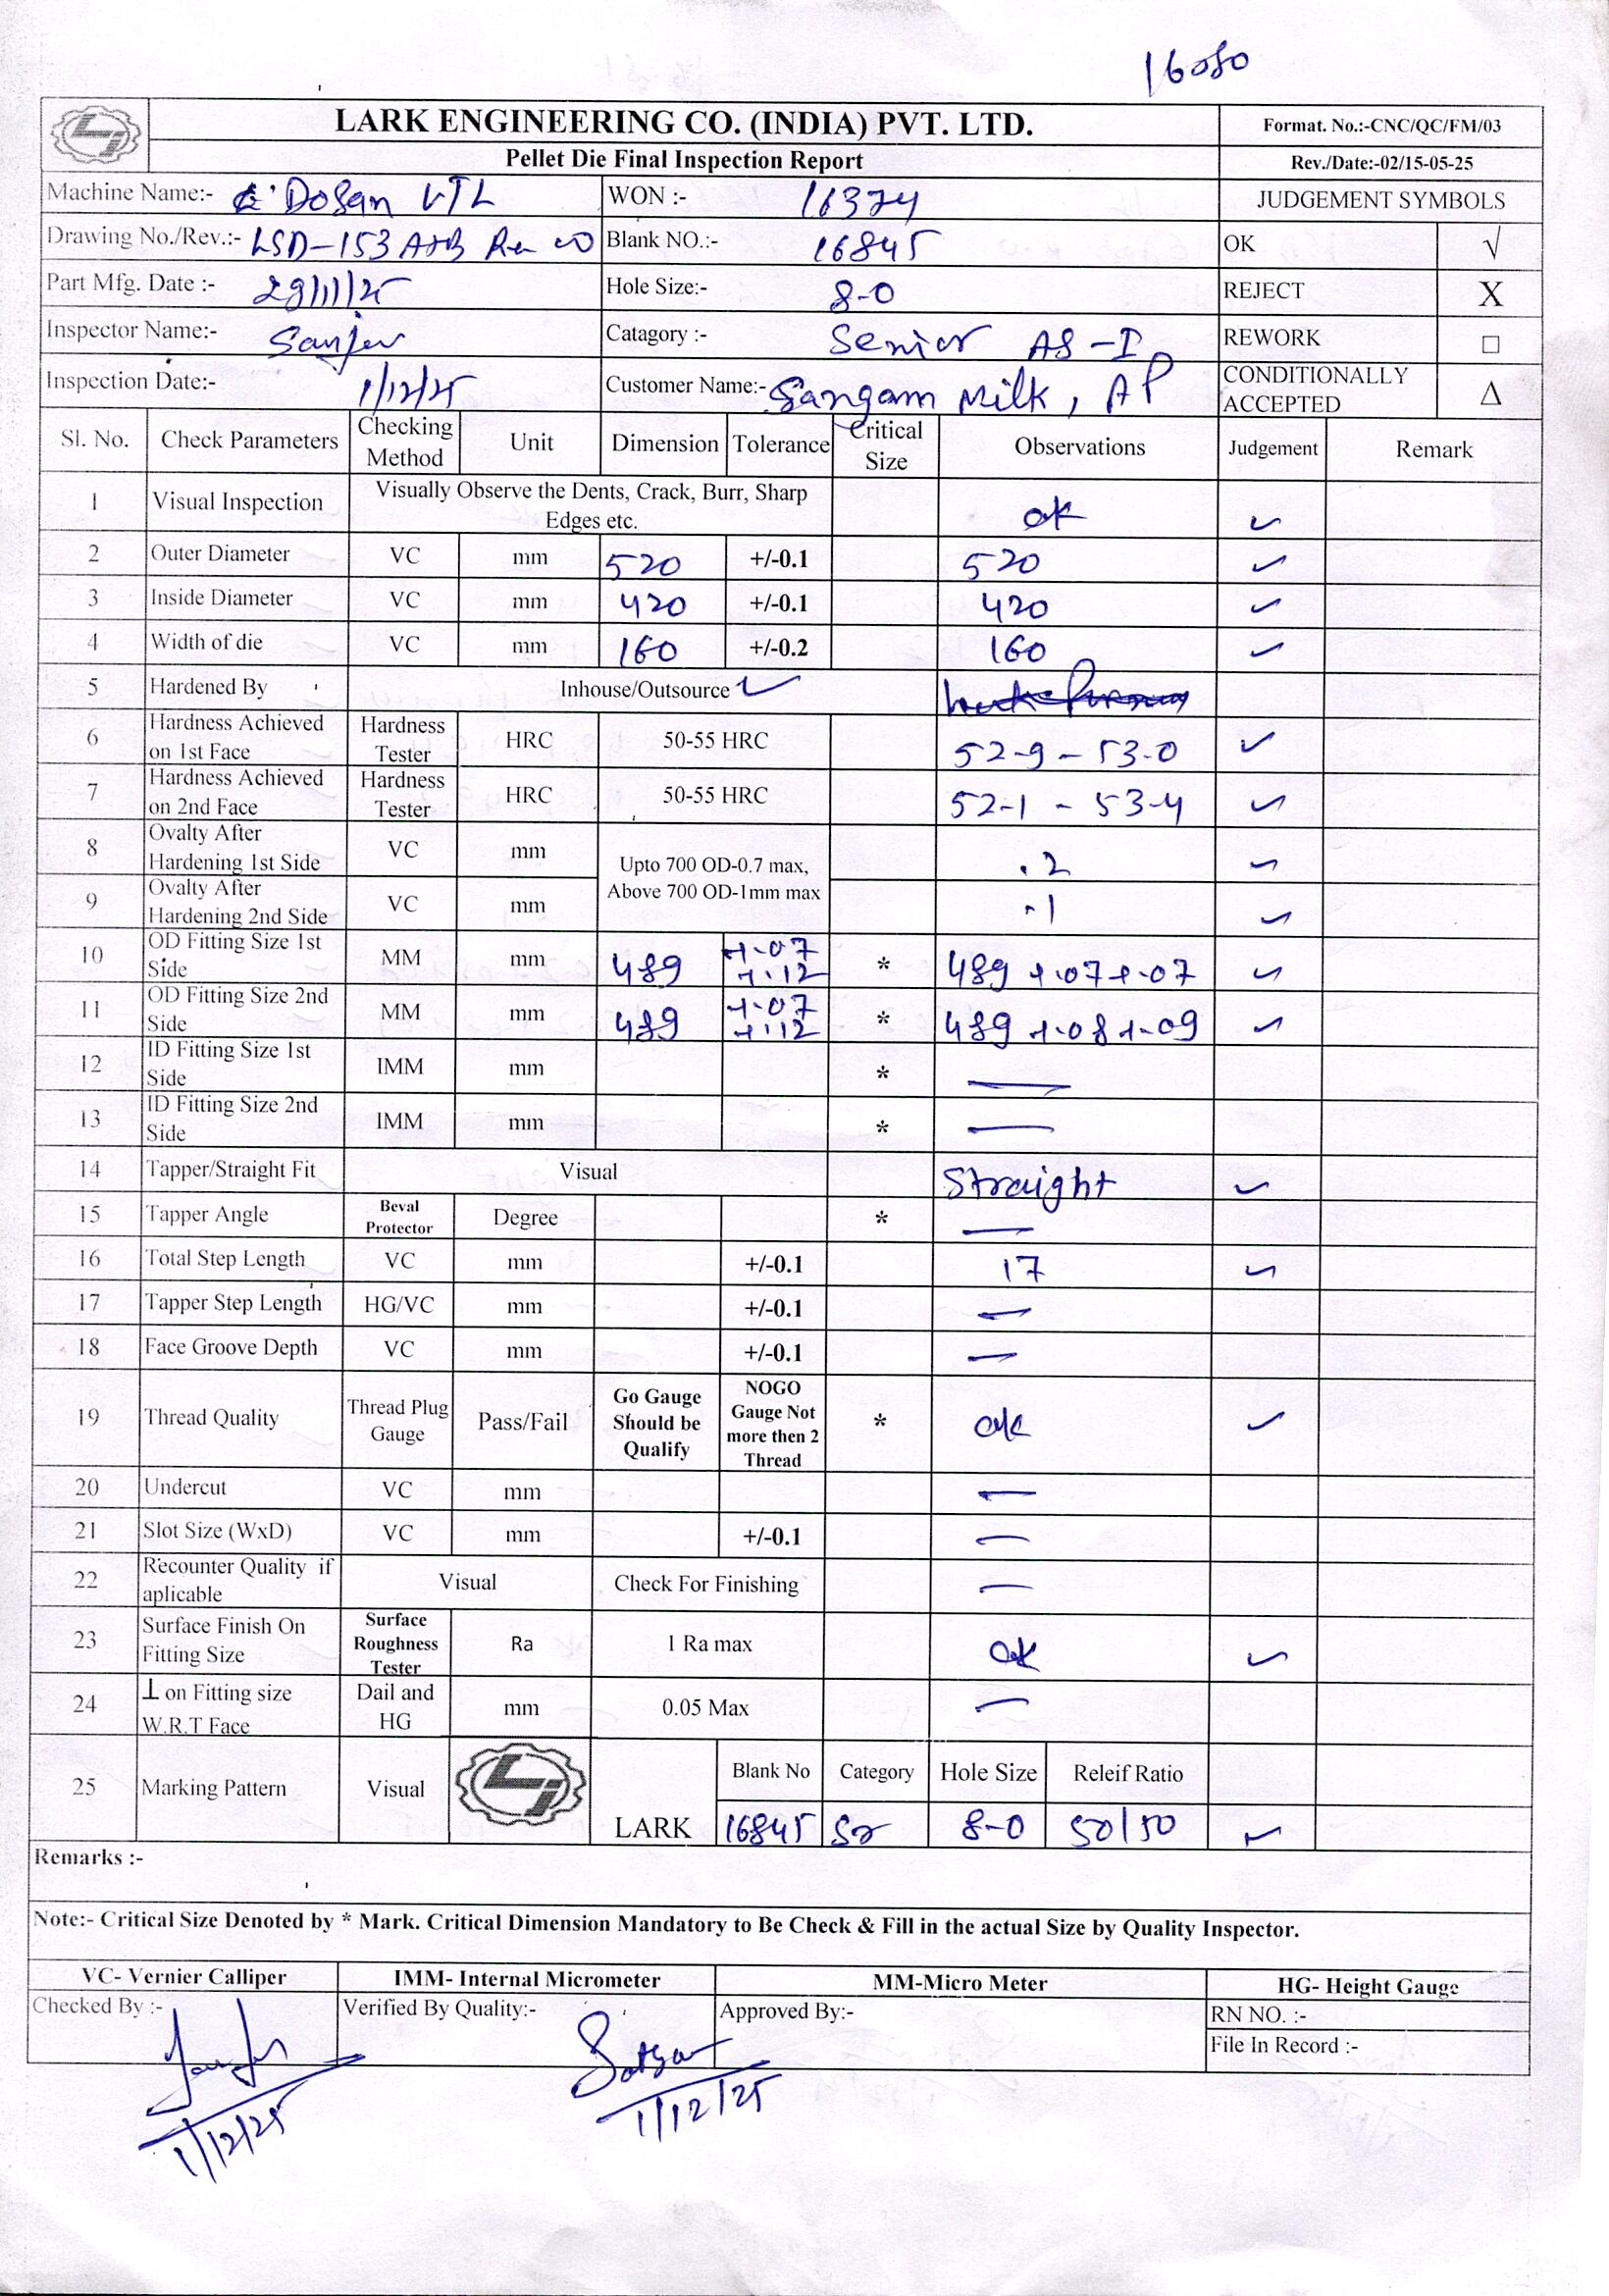 16080
LARK ENGINEERING CO. (INDIA) PVT. LTD.
Format. No.:-CNC/QC/FM/03
Pellet Die Final Inspection Report
Rev./Date:-02/15-05-25
Machine Name:- Dosan VTL WON :- 16374 JUDGEMENT SYMBOLS
Drawing No./Rev.:- LSD-153 A+B Rev 00 Blank NO.:- 16845 OK √
Part Mfg. Date :- 29/11/25 Hole Size:- 8-0 REJECT X
Inspector Name:- Sanjev Catagory :- Senior AS-I REWORK □
Inspection Date:- 1/12/25 Customer Name:- Sangam Milk, AP CONDITIONALLY ACCEPTED Δ
Sl. No. Check Parameters Checking Method Unit Dimension Tolerance Critical Size Observations Judgement Remark
1 Visual Inspection Visually Observe the Dents, Crack, Burr, Sharp Edges etc. ok ✓
2 Outer Diameter VC mm 520 +/-0.1 520 ✓
3 Inside Diameter VC mm 420 +/-0.1 420 ✓
4 Width of die VC mm 160 +/-0.2 160 ✓
5 Hardened By Inhouse/Outsource ✓
6 Hardness Achieved on 1st Face Hardness Tester HRC 50-55 HRC 52-9 - 53-0 ✓
7 Hardness Achieved on 2nd Face Hardness Tester HRC 50-55 HRC 52-1 - 53-4 ✓
8 Ovalty After Hardening 1st Side VC mm Upto 700 OD-0.7 max, Above 700 OD-1mm max .2 ✓
9 Ovalty After Hardening 2nd Side VC mm .1 ✓
10 OD Fitting Size 1st Side MM mm 489 +.07 +.12 * 489 +.07 +.07 ✓
11 OD Fitting Size 2nd Side MM mm 489 +.07 +.12 * 489 +.08 +.09 ✓
12 ID Fitting Size 1st Side IMM mm * —
13 ID Fitting Size 2nd Side IMM mm * —
14 Tapper/Straight Fit Visual Straight ✓
15 Tapper Angle Beval Protector Degree * —
16 Total Step Length VC mm +/-0.1 17 ✓
17 Tapper Step Length HG/VC mm +/-0.1 —
18 Face Groove Depth VC mm +/-0.1 —
19 Thread Quality Thread Plug Gauge Pass/Fail Go Gauge Should be Qualify NOGO Gauge Not more then 2 Thread * ok ✓
20 Undercut VC mm —
21 Slot Size (WxD) VC mm +/-0.1 —
22 Recounter Quality if aplicable Visual Check For Finishing —
23 Surface Finish On Fitting Size Surface Roughness Tester Ra 1 Ra max ok ✓
24 ⊥ on Fitting size W.R.T Face Dail and HG mm 0.05 Max —
25 Marking Pattern Visual LARK Blank No Category Hole Size Releif Ratio
16845 Sr 8-0 50/50 ✓
Remarks :-
Note:- Critical Size Denoted by * Mark. Critical Dimension Mandatory to Be Check & Fill in the actual Size by Quality Inspector.
VC- Vernier Calliper IMM- Internal Micrometer MM-Micro Meter HG- Height Gauge
Checked By :- Verified By Quality:- Approved By:- RN NO. :-
File In Record :-
1/12/25 1/12/25